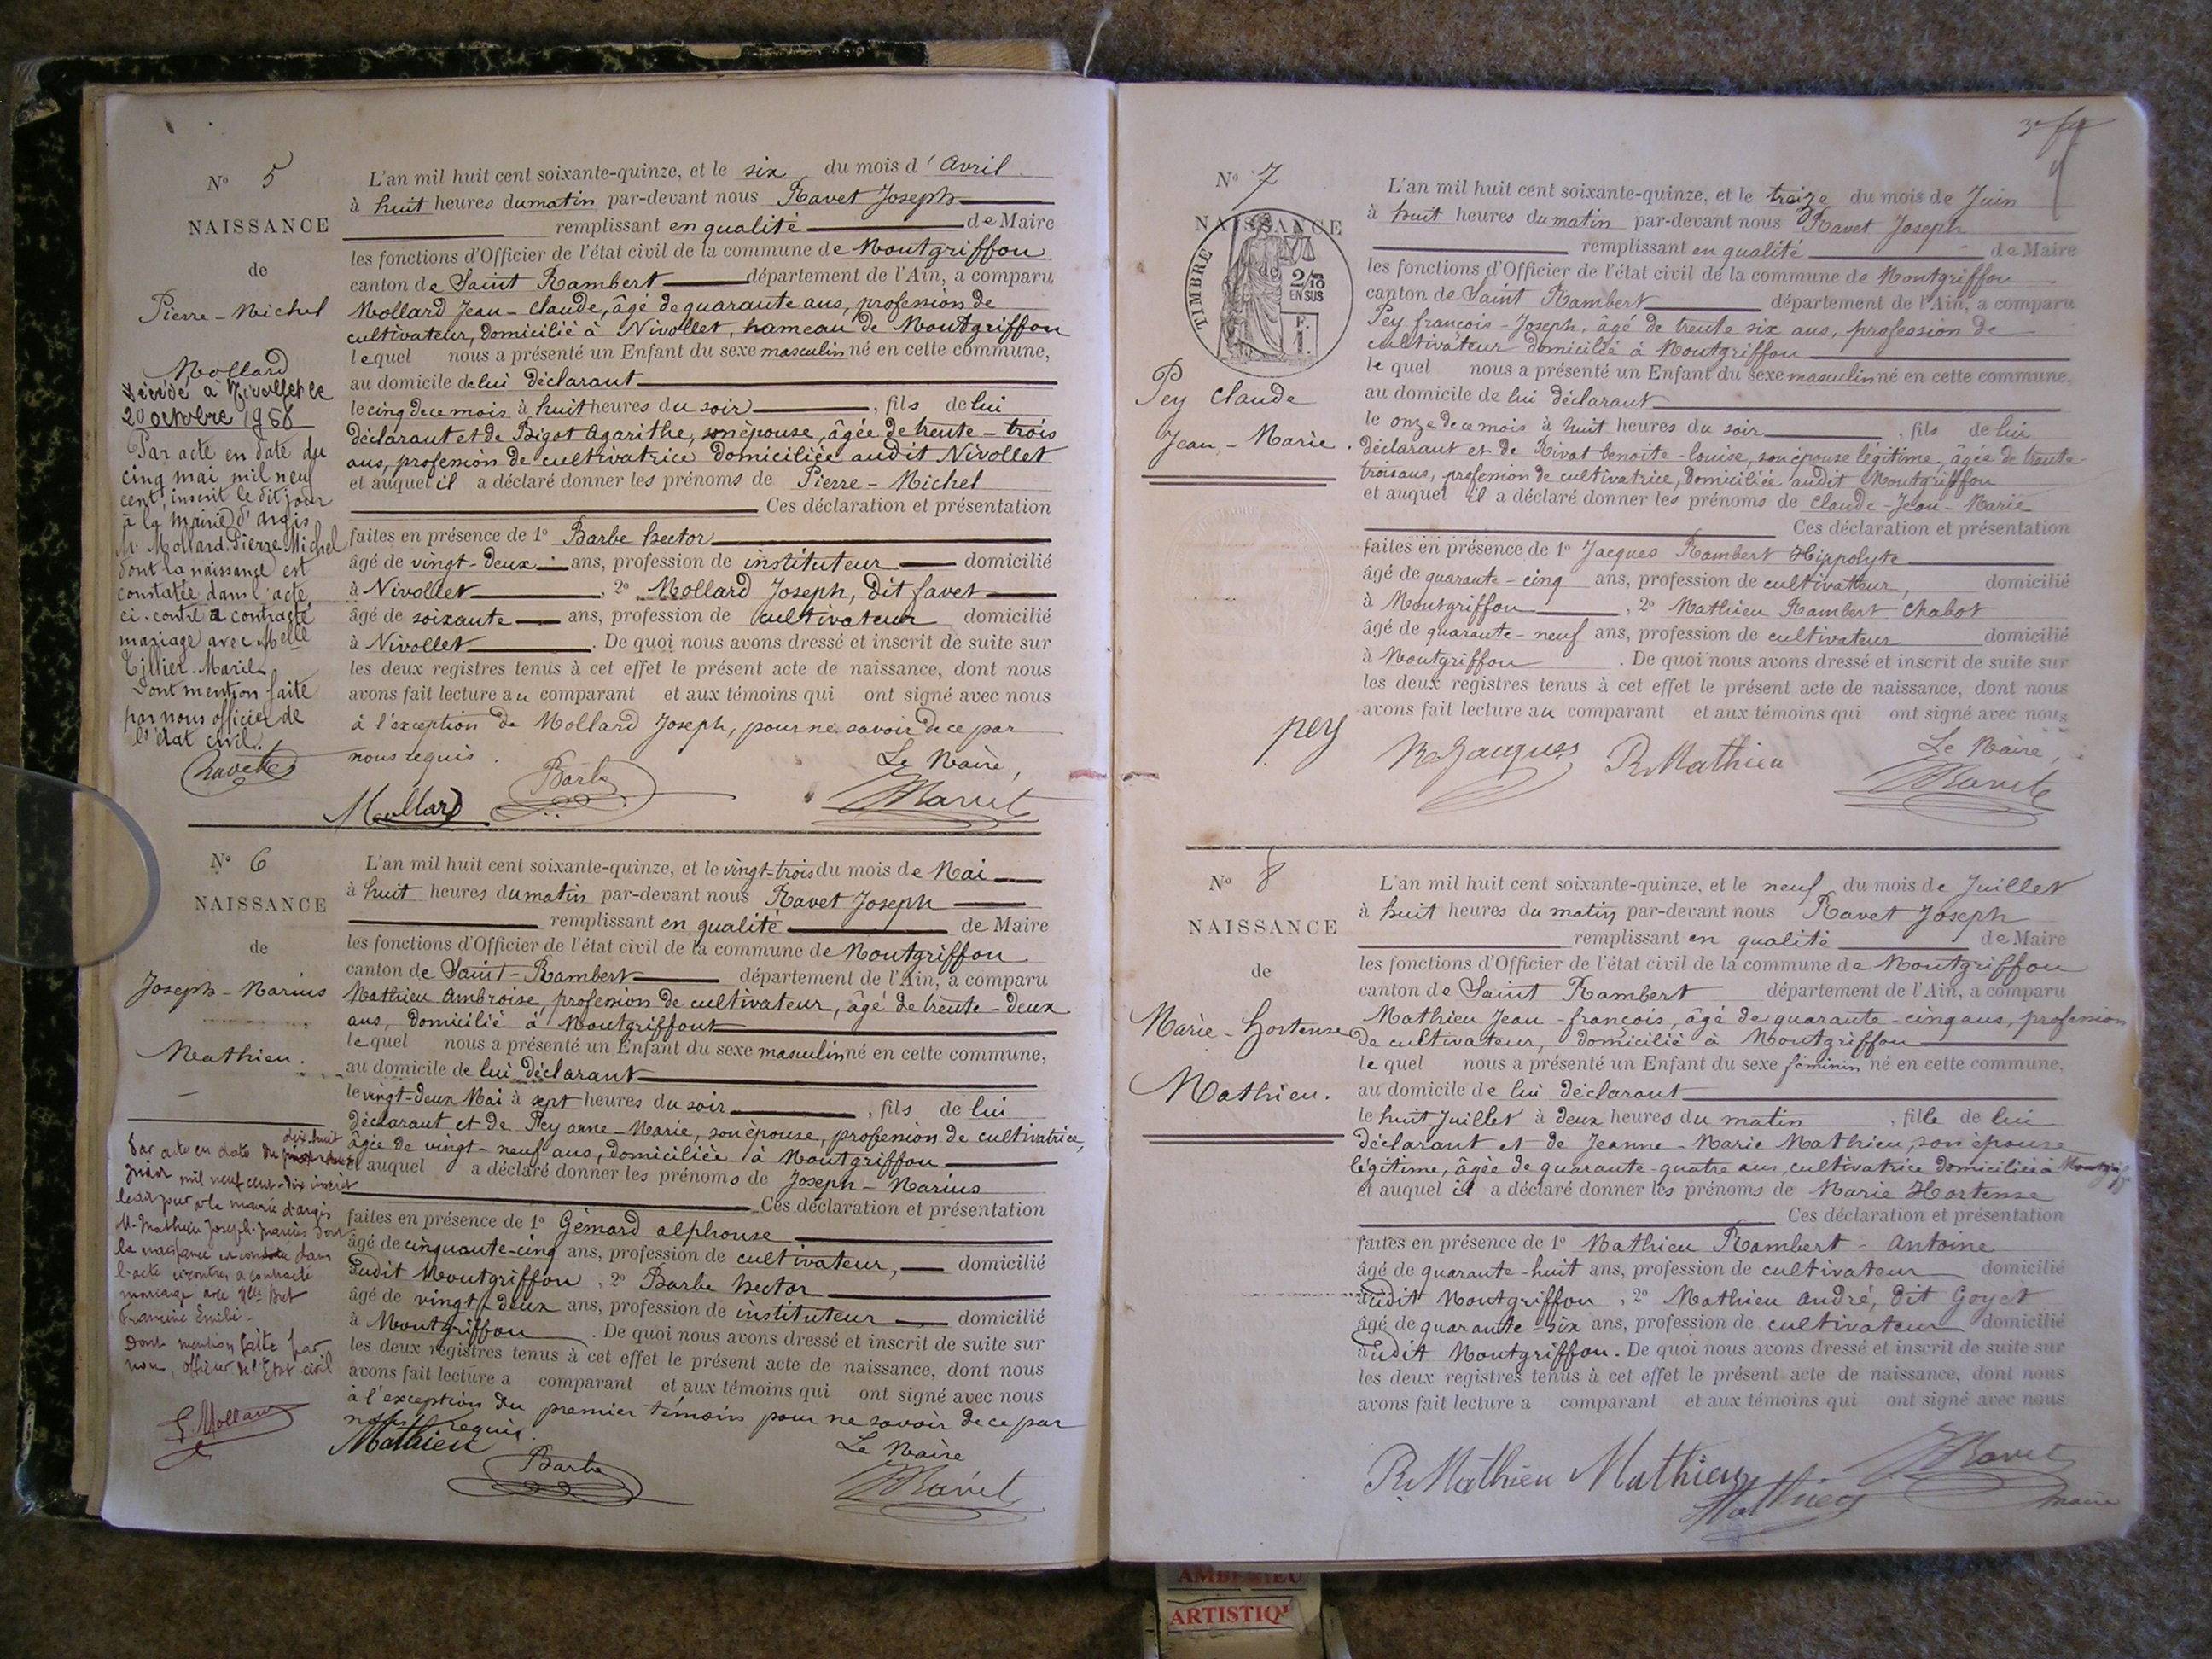 N° 5
NAISSANCE
de
Pierre - Michel
Mollard
décédé à Nivollet le
20 octobre 1956
Par acte en date du
cinq mai mil neuf
cent, inscrit le dit jour
à la mairie d'Argis
M. Mollard Pierre Michel
dont la naissance est
constatée dans l'acte
ci-contre a contracté
mariage avec Melle
Tillier Marie
Dont mention faite
par nous officier de
l'état civil.
L'an mil huit cent soixante-quinze, et le six du mois d'Avril
à huit heures du matin par-devant nous Ravet Joseph
remplissant en qualité de Maire
les fonctions d'Officier de l'état civil de la commune de Montgriffon
canton de Saint Rambert département de l'Ain, a comparu
Mollard Jean - Claude, âgé de quarante ans, profession de
cultivateur, domicilié à Nivollet, hameau de Montgriffon
lequel nous a présenté un Enfant du sexe masculin né en cette commune,
au domicile de lui déclarant
le cinq de ce mois à huit heures du soir, fils de lui
déclarant et de Bigot Agarithe, son épouse, âgée de trente - trois
ans, profession de cultivatrice domiciliée audit Nivollet
et auquel il a déclaré donner les prénoms de Pierre - Michel
Ces déclaration et présentation
faites en présence de 1° Barbe hector
âgé de vingt-deux ans, profession de instituteur domicilié
à Nivollet, 2° Mollard Joseph, dit favet
âgé de soixante ans, profession de cultivateur domicilié
à Nivollet. De quoi nous avons dressé et inscrit de suite sur
les deux registres tenus à cet effet le présent acte de naissance, dont nous
avons fait lecture au comparant et aux témoins qui ont signé avec nous
à l'exception de Mollard Joseph, pour ne savoir de ce par
nous requis.
Le Maire,
Mollard Barbe Ravet
N° 6
NAISSANCE
de
Joseph - Marius
Mathieu.
Par acte en date du dix-huit
mil neuf cent-dix inscrit
le dit jour à la mairie d'Argis
M. Mathieu Joseph-Marius dont
la naissance est constatée dans
l'acte ci-contre a contracté
mariage avec Melle Bret
Francine Emilie -
Dont mention faite par
nous, officier de l'Etat civil
Mollard
L'an mil huit cent soixante-quinze, et le vingt-trois du mois de Mai
à huit heures du matin par-devant nous Ravet Joseph
remplissant en qualité de Maire
les fonctions d'Officier de l'état civil de la commune de Montgriffon
canton de Saint-Rambert département de l'Ain, a comparu
Mathieu Ambroise, profession de cultivateur, âgé de trente-deux
ans, domicilié à Montgriffont
lequel nous a présenté un Enfant du sexe masculin né en cette commune,
au domicile de lui déclarant
le vingt-deux Mai à sept heures du soir, fils de lui
déclarant et de Pey anne-Marie, son épouse, profession de cultivatrice,
âgée de vingt-neuf ans, domiciliée à Montgriffon
et auquel a déclaré donner les prénoms de Joseph - Marius
Ces déclaration et présentation
faites en présence de 1° Gémard alphonse
âgé de cinquante-cinq ans, profession de cultivateur, domicilié
audit Montgriffon, 2° Barbe hector
âgé de vingt-deux ans, profession de instituteur domicilié
à Montgriffon. De quoi nous avons dressé et inscrit de suite sur
les deux registres tenus à cet effet le présent acte de naissance, dont nous
avons fait lecture a comparant et aux témoins qui ont signé avec nous
à l'exception du premier témoin pour ne savoir de ce par
nous requis.
Le Maire
Mathieu Barbe Ravet
N° 7
NAISSANCE
de
TIMBRE
2/10
EN SUS
F.
1.
Pey Claude
Jean - Marie.
L'an mil huit cent soixante-quinze, et le treize du mois de Juin
à huit heures du matin par-devant nous Ravet Joseph
remplissant en qualité de Maire
les fonctions d'Officier de l'état civil de la commune de Montgriffon
canton de Saint Rambert département de l'Ain, a comparu
Pey françois - Joseph, âgé de trente six ans, profession de
cultivateur domicilié à Montgriffon
le quel nous a présenté un Enfant du sexe masculin né en cette commune,
au domicile de lui déclarant
le onze de ce mois à huit heures du soir, fils de lui
déclarant et de Rivat benoite - louise, son épouse légitime, âgée de trente
trois ans, profession de cultivatrice, domiciliée audit Montgriffon
et auquel il a déclaré donner les prénoms de Claude - Jean - Marie
Ces déclaration et présentation
faites en présence de 1° Jacques Rambert Hippolyte
âgé de quarante - cinq ans, profession de cultivateur, domicilié
à Montgriffon, 2° Mathieu Rambert Chabot
âgé de quarante - neuf ans, profession de cultivateur domicilié
à Montgriffon. De quoi nous avons dressé et inscrit de suite sur
les deux registres tenus à cet effet le présent acte de naissance, dont nous
avons fait lecture au comparant et aux témoins qui ont signé avec nous
Le Maire,
pey R. Jacques R. Mathieu Ravet
N° 8
NAISSANCE
de
Marie - Hortense
Mathieu.
L'an mil huit cent soixante-quinze, et le neuf du mois de Juillet
à huit heures du matin par-devant nous Ravet Joseph
remplissant en qualité de Maire
les fonctions d'Officier de l'état civil de la commune de Montgriffon
canton de Saint Rambert département de l'Ain, a comparu
Mathieu Jean - françois, âgé de quarante - cinq ans, profession
de cultivateur, domicilié à Montgriffon
le quel nous a présenté un Enfant du sexe féminin né en cette commune,
au domicile de lui déclarant
le huit Juillet à deux heures du matin, fille de lui
déclarant et de Jeanne - Marie Mathieu, son épouse
légitime, âgée de quarante-quatre ans, cultivatrice domiciliée à Montgriffon
et auquel il a déclaré donner les prénoms de Marie Hortense
Ces déclaration et présentation
faites en présence de 1° Mathieu Rambert - Antoine
âgé de quarante-huit ans, profession de cultivateur domicilié
audit Montgriffon, 2° Mathieu André, dit Goyet
âgé de quarante-six ans, profession de cultivateur domicilié
audit Montgriffon. De quoi nous avons dressé et inscrit de suite sur
les deux registres tenus à cet effet le présent acte de naissance, dont nous
avons fait lecture a comparant et aux témoins qui ont signé avec nous
R. Mathieu Mathieu Mathieu Ravet
maire
ARTISTIQ